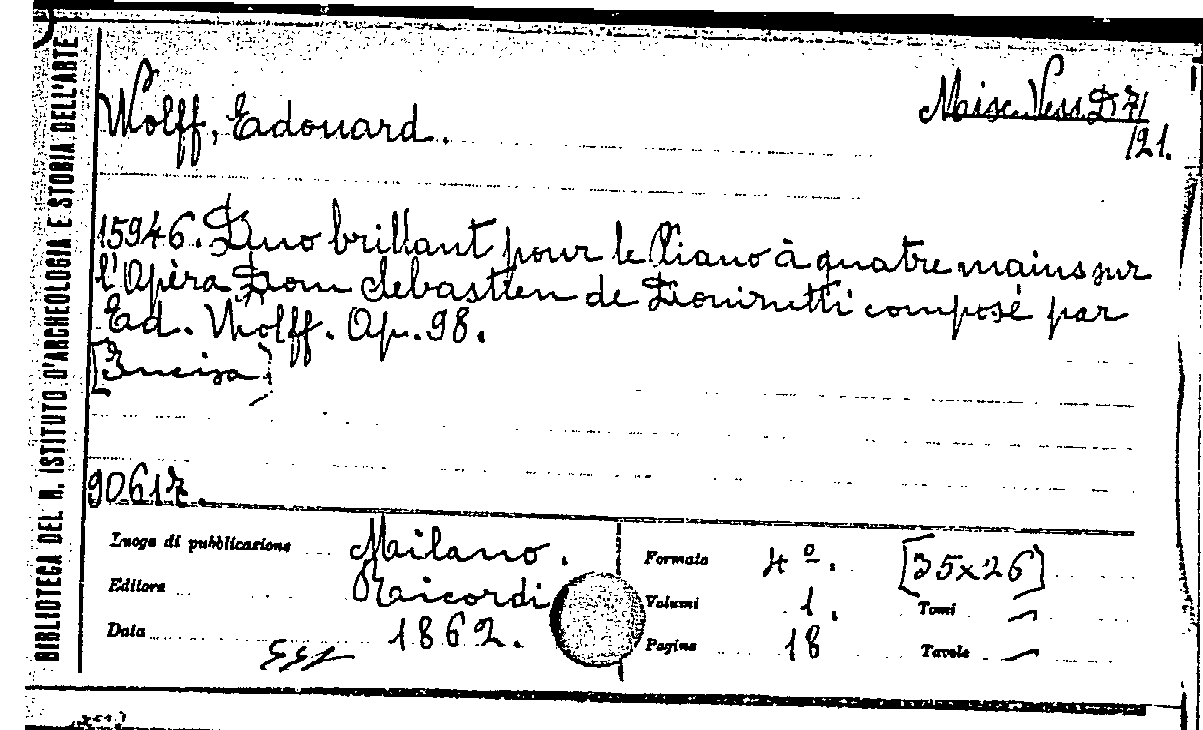 BIBLIOTECA DEL R. ISTITUTO D'ARCHEOLOGIA E STORIA DELL'ARTE
Wolff, Edouard.
Misc. Vess. D 7/
/21.
15946. Duo brillant pour le Piano à quatre mains sur
l'Opèra Dom Sebastien de Donizetti composé par
Ed. Wolff. Op. 98.
[Incisa]
90617.
Luogo di pubblicazione Milano.
Editore Ricordi
Data 1862.
Formato 4º. [35x26]
Volumi 1. Tomi –
Pagine 18 Tavole –